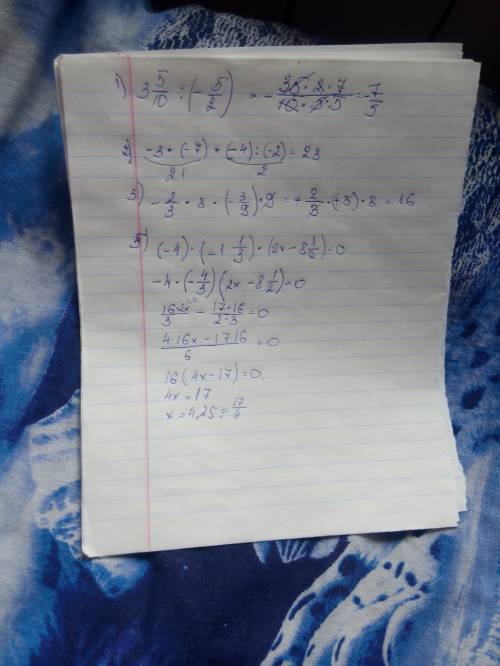 1) 3 5/10 : (- 5/2) = - 35 · 2 · 7 / 10 · 5 · 5 = - 7/5
2) -3 · (-7) + (-4) : (-2) = 23
21 2
3) - 2/3 · 8 · (- 3/9) · 9 = + 2/3 · (+3) · 8 = 16
5) (-4) · (-1 1/3) · (2x - 8 1/2) = 0
-4 · (- 4/3) (2x - 8 1/2) = 0
16·2x/3 - 17·16/2·3 = 0
4·16x - 17·16 / 6 = 0
16 (4x - 17) = 0.
4x = 17
x = 4,25 = 17/4